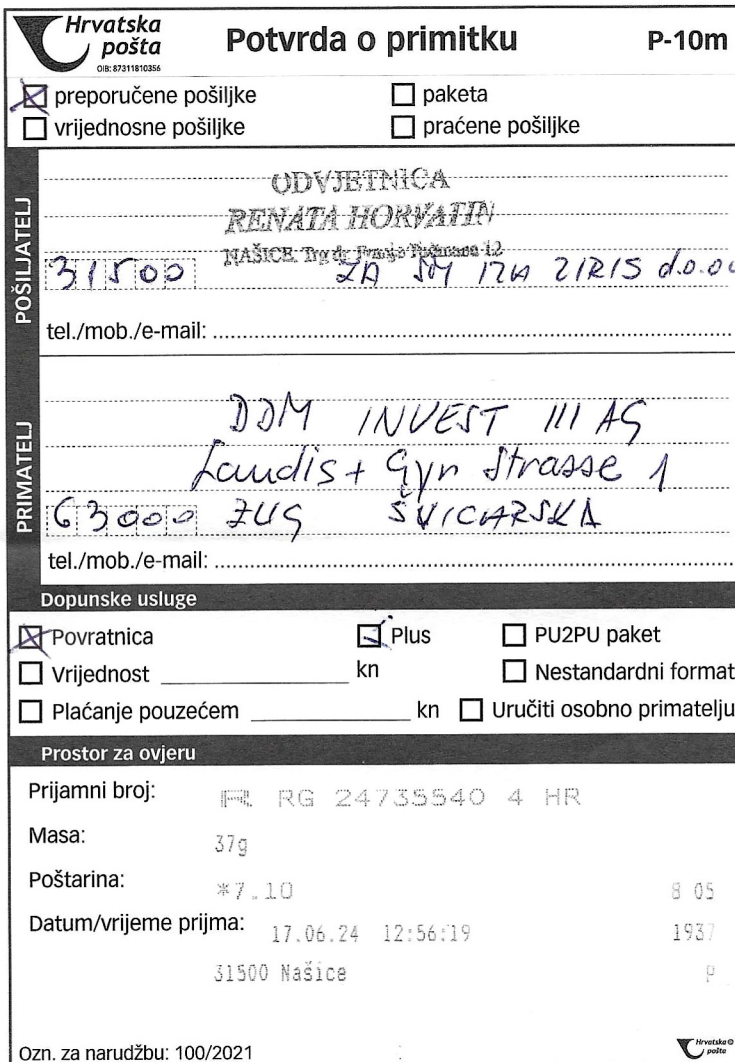 Hrvatska pošta
OIB: 87311810356
Potvrda o primitku
P-10m
preporučene pošiljke
paketa
vrijednosne pošiljke
praćene pošiljke
POŠILJATELJ
ODVJETNICA
RENATA HORVATIN
NAŠICE, Trg dr. Franje Tuđmana 12
31500 ZA ZIRIS d.o.o.
tel./mob./e-mail:
PRIMATELJ
DDM INVEST III AG
Landis + Gyr Strasse 1
63000 ZUG ŠVICARSKA
tel./mob./e-mail:
Dopunske usluge
Povratnica
Plus
PU2PU paket
Vrijednost kn
Nestandardni format
Plaćanje pouzećem kn
Uručiti osobno primatelju
Prostor za ovjeru
Prijamni broj: R RG 24735540 4 HR
Masa: 37g
Poštarina: *7.10 8 05
Datum/vrijeme prijma: 17.06.24 12:56:19 1937
31500 Našice P
Ozn. za narudžbu: 100/2021
Hrvatska pošta